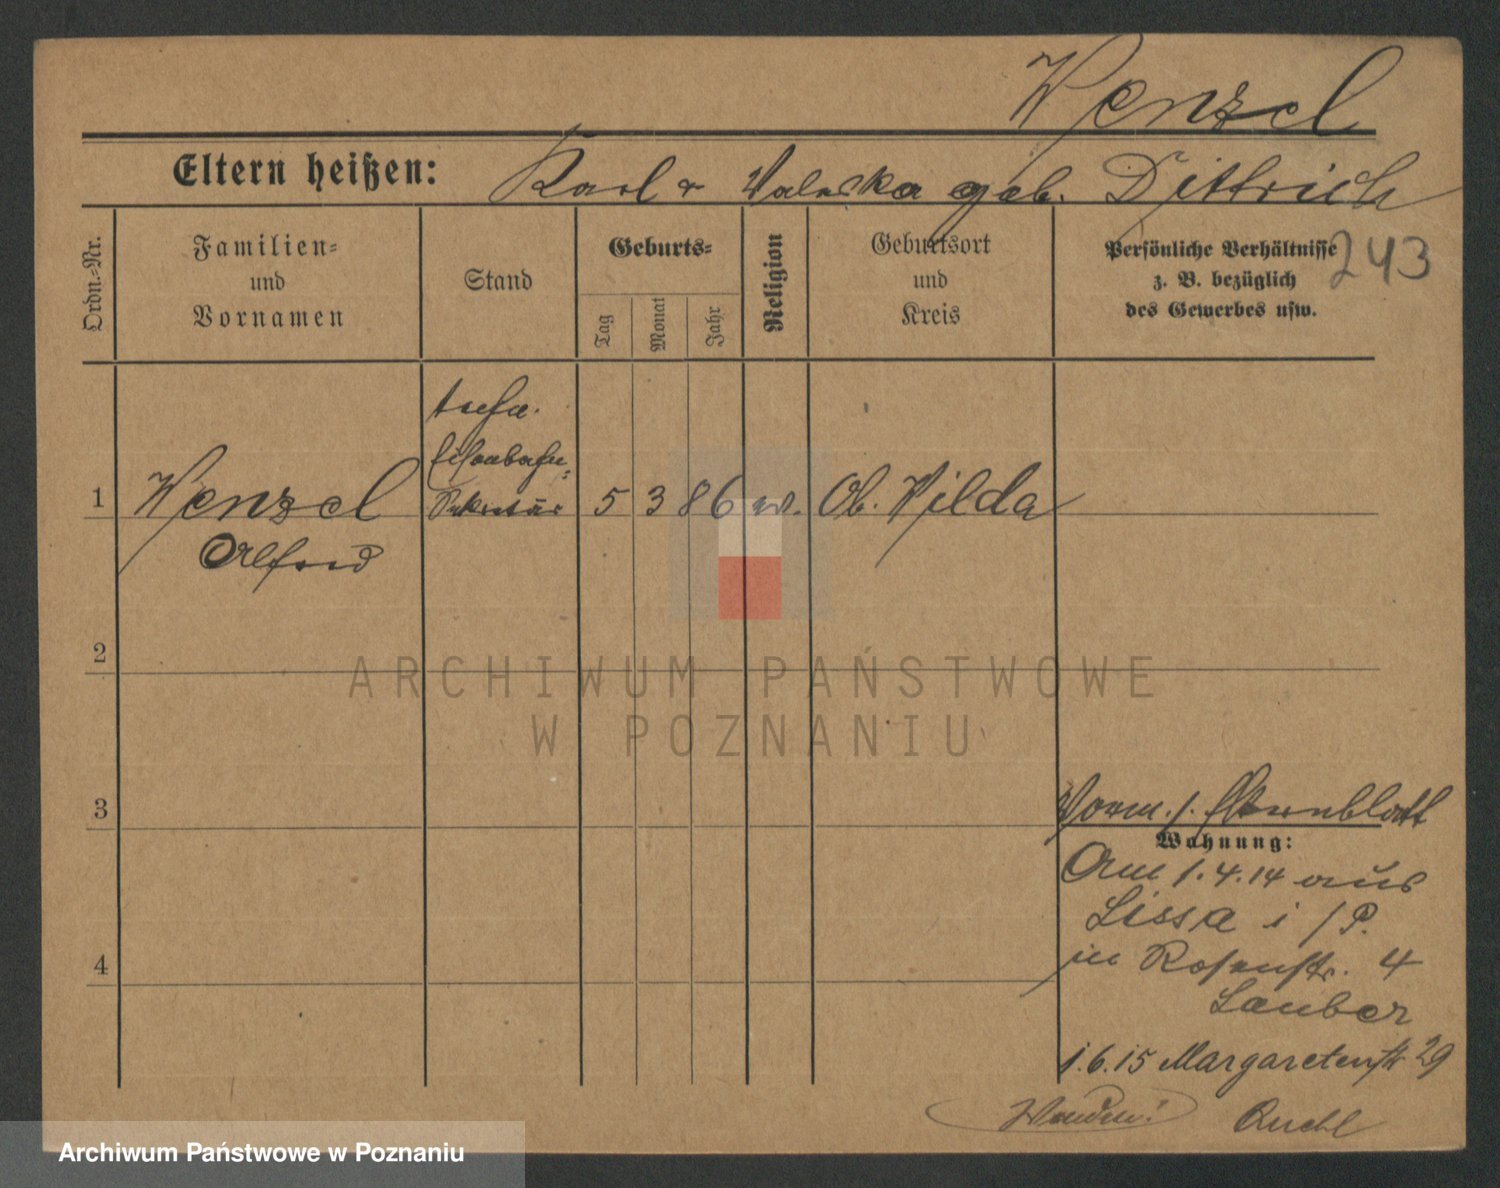 Wenzel
Eltern heißen: Karl u Valeska geb. Dittrich
Ordn.-Nr.
Familien-
und
Vornamen
Stand
Geburts-
Tag
Monat
Jahr
Religion
Geburtsort
und
Kreis
Persönliche Verhältnisse
z. B. bezüglich
des Gewerbes usw.
243
techn.
Eisenbahn-
1 Wenzel Sekretär 5 3 86 Ob. Wilda
Alfred
2
3
4
Vorm. s. Elternblatt
Wohnung:
Am 1.4.14 aus
Lissa i/P.
in Rosenstr. 4
Lauber
1.6.15 Margaretenstr 29
ARCHIWUM PAŃSTWOWE
W POZNANIU
Archiwum Państwowe w Poznaniu